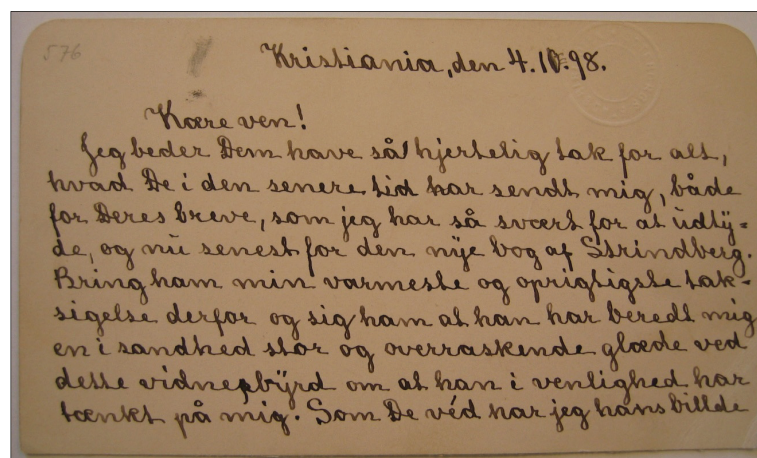 576
Kristiania, den 4.10.98.
Kære ven!
Jeg beder Dem have så hjertelig tak for alt,
hvad De i den senere tid har sendt mig, både
for Deres breve, som jeg har så svært for at udty=
de, og nu senest for den nye bog af Strindberg.
Bring ham min varmeste og oprigtigste tak-
sigelse derfor og sig ham at han har beredt mig
en i sandhed stor og overraskende glæde ved
dette vidnesbyrd om at han i venlighed har
tænkt på mig. Som De véd har jeg hans billde